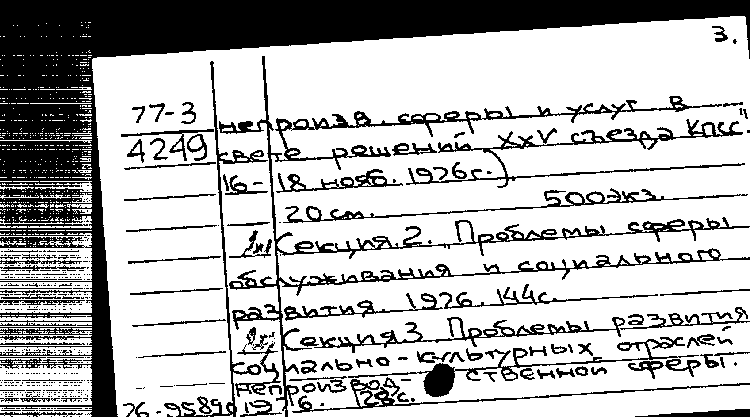 3.
77-3
4249
непроизв. сферы и услуг в
свете решений XXV съезда КПСС"
16-18 нояб. 1976г.).
20 см. 500экз.
Секция.2. Проблемы сферы
обслуживания и социального
развития. 1976. 144с.
Секция.3 Проблемы развития
социально-культурных отраслей
непроизвод- ственной сферы.
1976. 128с.